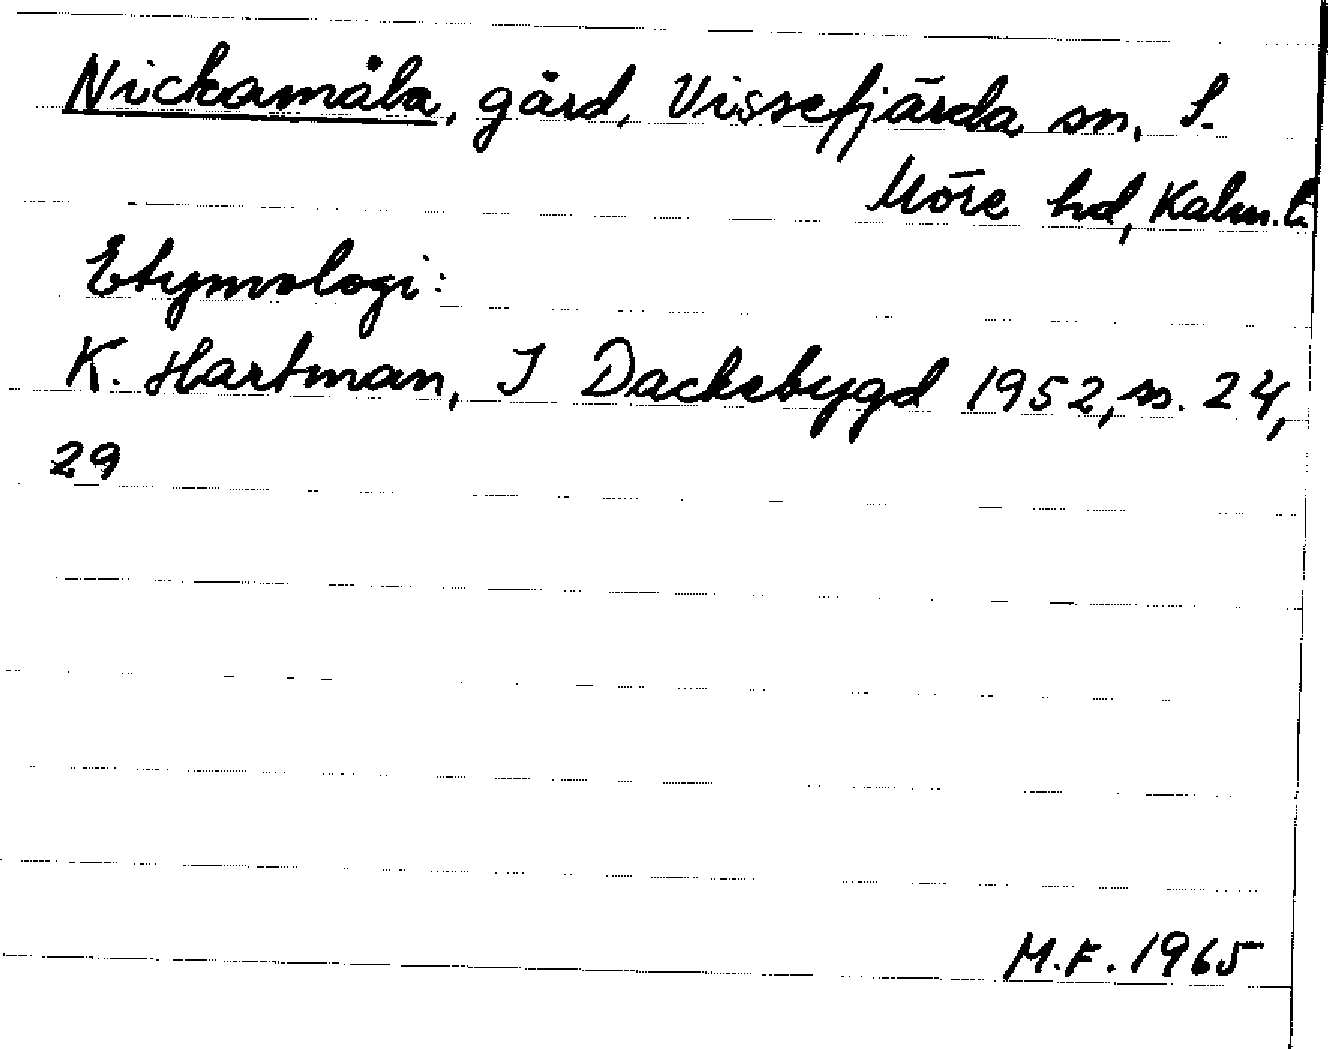 Nickamåla, gård, Vissefjärda sn, S.
Möre hd, Kalm. l.
Etymologi:
K. Hartman, I Dackebygd 1952, ss. 24,
29
M.F. 1965